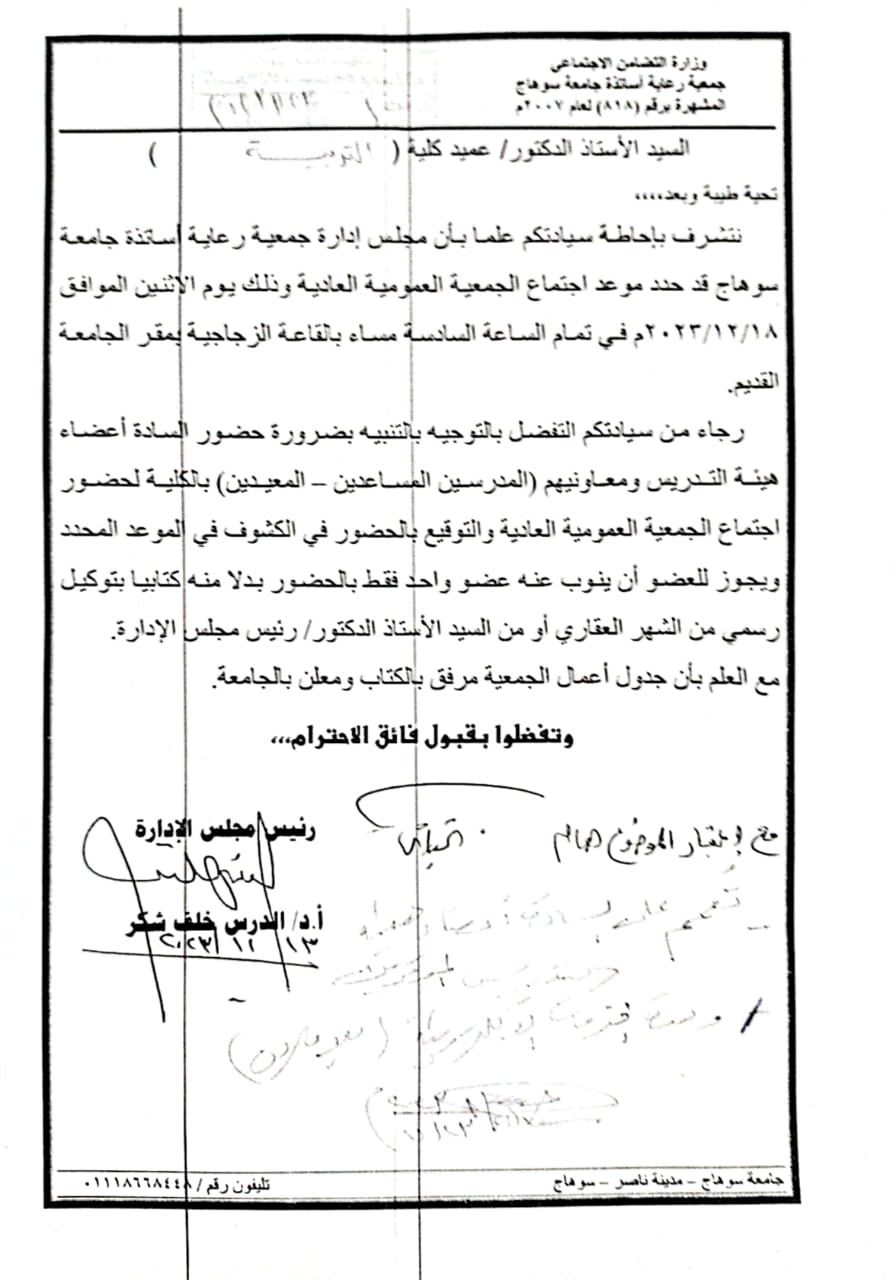 وزارة التضامن الاجتماعي
جمعية رعاية أساتذة جامعة سوهاج
المشهرة برقم (٨١٨) لعام ٢٠٠٧م
السيد الأستاذ الدكتور/ عميد كلية ( التربيـــة )
تحية طيبة وبعد،،،،
نتشرف بإحاطة سيادتكم علما بأن مجلس إدارة جمعية رعاية أساتذة جامعة
سوهاج قد حدد موعد اجتماع الجمعية العمومية العادية وذلك يوم الاثنين الموافق
٢٠٢٣/١٢/١٨م في تمام الساعة السادسة مساء بالقاعة الزجاجية بمقر الجامعة
القديم.
رجاء من سيادتكم التفضل بالتوجيه بالتنبيه بضرورة حضور السادة أعضاء
هيئة التدريس ومعاونيهم (المدرسين المساعدين – المعيدين) بالكلية لحضور
اجتماع الجمعية العمومية العادية والتوقيع بالحضور في الكشوف في الموعد المحدد
ويجوز للعضو أن ينوب عنه عضو واحد فقط بالحضور بدلا منه كتابيا بتوكيل
رسمي من الشهر العقاري أو من السيد الأستاذ الدكتور/ رئيس مجلس الإدارة.
مع العلم بأن جدول أعمال الجمعية مرفق بالكتاب ومعلن بالجامعة.
وتفضلوا بقبول فائق الاحترام،،،
مع اعتبار الموضوع هام
رئيس مجلس الإدارة
أ.د/ الدرس خلف شكر
٢٠٢٣/١١/١٣
جامعة سوهاج – مدينة ناصر – سوهاج
تليفون رقم / ٠١١١٨٦٦٨٤٤٨